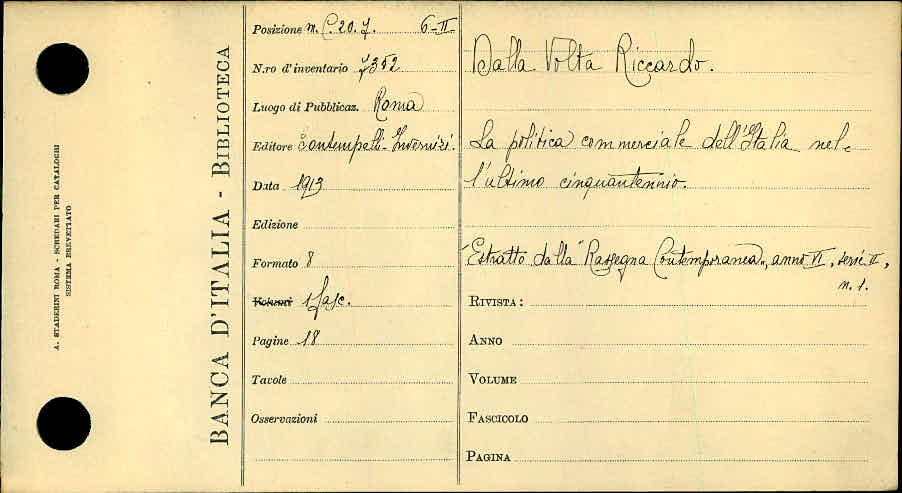 A. STADERINI ROMA - SCHEDARI PER CATALOGHI
SISTEMA BREVETTATO
BANCA D'ITALIA - BIBLIOTECA
Posizione m. C. 20. 7. 6-II-
N.ro d'inventario 7352
Luogo di Pubblicaz. Roma
Editore Contempelli-Invernizi.
Data 1913
Edizione
Formato 8
Volumi 1 fasc.
Pagine 18
Tavole
Osservazioni
Dalla Volta Riccardo.
La politica commerciale dell'Italia nel-
l'ultimo cinquantennio.
Estratto dalla "Rassegna Contemporanea", anno VI, serie II,
n. 1.
RIVISTA:
ANNO
VOLUME
FASCICOLO
PAGINA